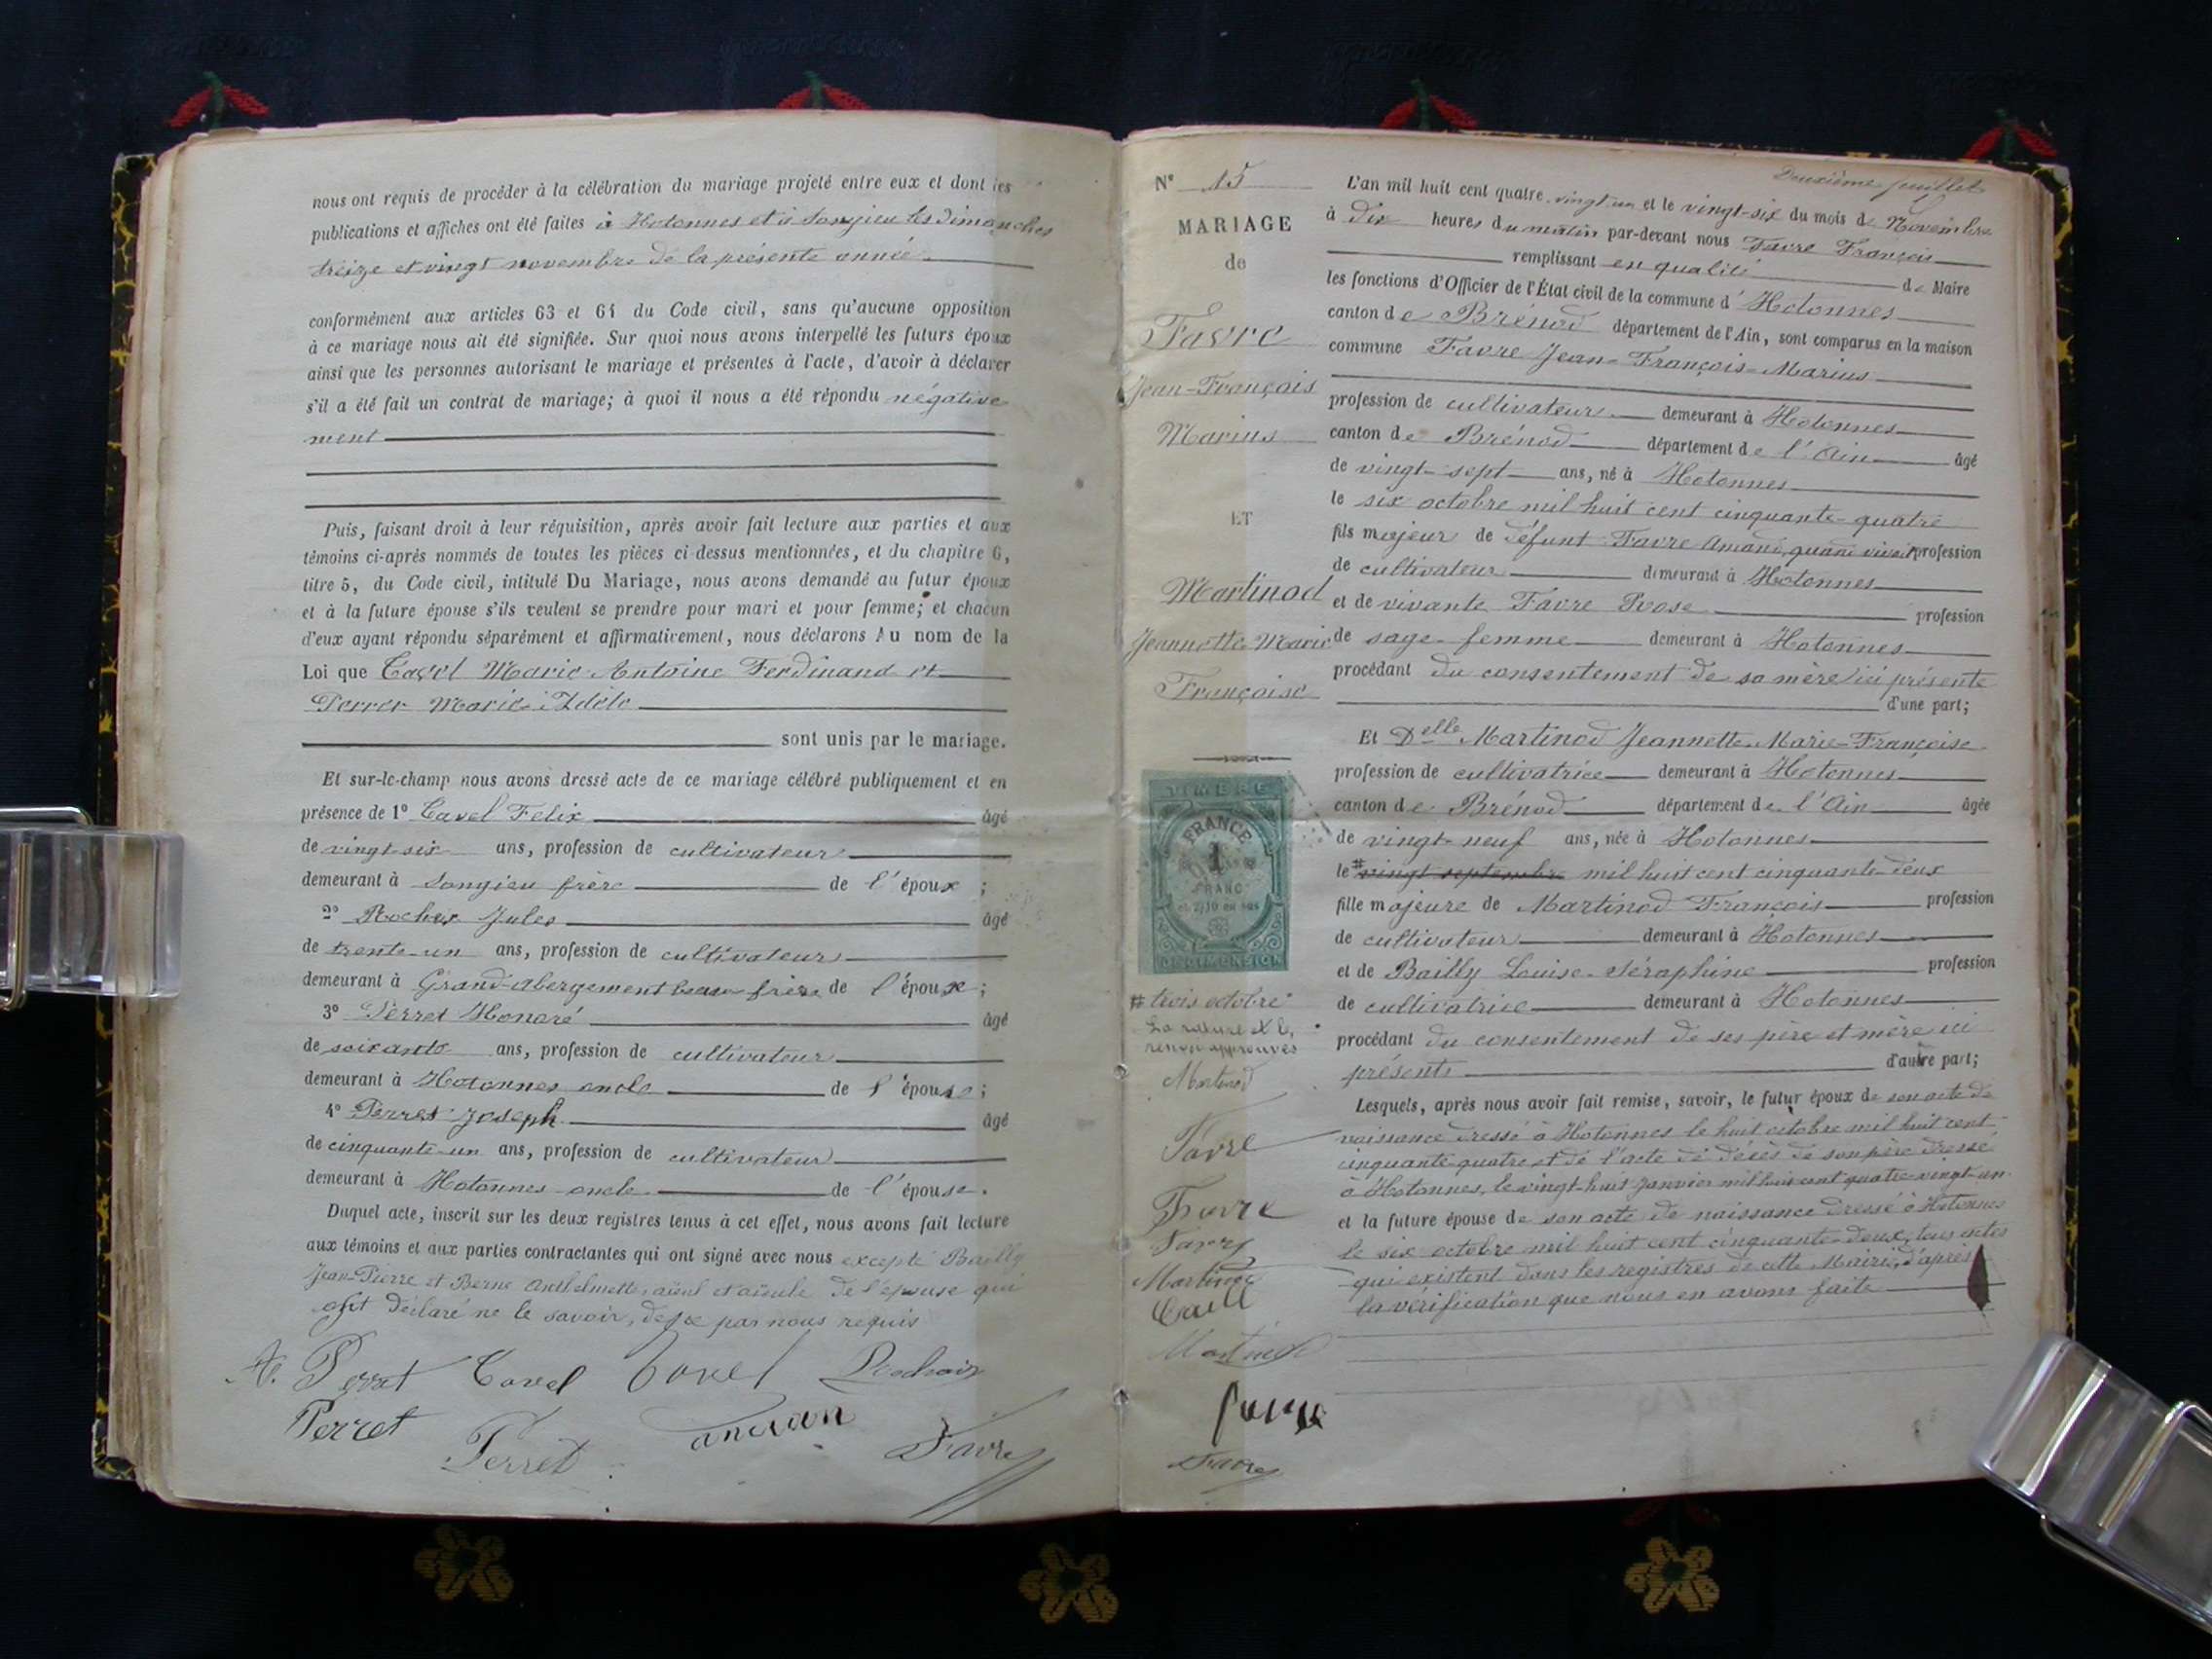 nous ont requis de procéder à la célébration du mariage projeté entre eux et dont les
publications et affiches ont été faites à Hotonnes et à Songieu les dimanches
treize et vingt novembre de la présente année.
conformément aux articles 63 et 64 du Code civil, sans qu'aucune opposition
à ce mariage nous ait été signifiée. Sur quoi nous avons interpellé les futurs époux
ainsi que les personnes autorisant le mariage et présentes à l'acte, d'avoir à déclarer
s'il a été fait un contrat de mariage; à quoi il nous a été répondu négative
ment
Puis, faisant droit à leur réquisition, après avoir fait lecture aux parties et aux
témoins ci-après nommés de toutes les pièces ci-dessus mentionnées, et du chapitre 6,
titre 5, du Code civil, intitulé Du Mariage, nous avons demandé au futur époux
et à la future épouse s'ils veulent se prendre pour mari et pour femme; et chacun
d'eux ayant répondu séparément et affirmativement, nous déclarons Au nom de la
Loi que Cavel Marie Antoine Ferdinand et
Perret Marie
sont unis par le mariage.
Et sur-le-champ nous avons dressé acte de ce mariage célébré publiquement et en
présence de 1º Cavel Felix âgé
de vingt-six ans, profession de cultivateur
demeurant à Songieu frère de l'époux ;
2º Jules âgé
de trente-un ans, profession de cultivateur
demeurant à Grand-Abergement beau-frère de l'époux ;
3º Perret Honoré âgé
de soixante ans, profession de cultivateur
demeurant à Hotonnes oncle de l'épouse ;
4º Perret Joseph âgé
de cinquante-un ans, profession de cultivateur
demeurant à Hotonnes oncle de l'épouse.
Duquel acte, inscrit sur les deux registres tenus à cet effet, nous avons fait lecture
aux témoins et aux parties contractantes qui ont signé avec nous excepté Bailly
Jean-Pierre et Berne Anthelmette, aïeul et aïeule de l'épouse qui
ont déclaré ne le savoir, de ce par nous requis
A. Perret Cavel Cavel
Perret Perret Favre
Nº 15
MARIAGE
de
Favre
Jean-François
Marius
ET
Martinod
Jeannette-Marie
Françoise
TIMBRE
FRANCE
1
FRANC
et 2/10 en sus
DE DIMENSION
# trois octobre
La rature et le
renvoi approuvés
Martinod
Favre
Favre
Favre
Martinod
Martinod
Favre
Deuxième feuillet
L'an mil huit cent quatre-vingt-un et le vingt-six du mois de Novembre
à dix heures du matin par-devant nous Favre François
remplissant en qualité de Maire
les fonctions d'Officier de l'État civil de la commune d'Hotonnes
canton de Brénod département de l'Ain, sont comparus en la maison
commune Favre Jean-François-Marius
profession de cultivateur demeurant à Hotonnes
canton de Brénod département de l'Ain âgé
de vingt-sept ans, né à Hotonnes
le six octobre mil huit cent cinquante-quatre
fils majeur de défunt Favre Amand, quand vivait profession
de cultivateur demeurant à Hotonnes
et de vivante Favre Rose profession
de sage-femme demeurant à Hotonnes
procédant du consentement de sa mère ici présente
d'une part;
Et Delle Martinod Jeannette-Marie-Françoise
profession de cultivatrice demeurant à Hotonnes
canton de Brénod département de l'Ain âgée
de vingt-neuf ans, née à Hotonnes
le # vingt septembre mil huit cent cinquante-deux
fille majeure de Martinod François profession
de cultivateur demeurant à Hotonnes
et de Bailly Louise-Séraphine profession
de cultivatrice demeurant à Hotonnes
procédant du consentement de ses père et mère ici
présents d'autre part;
Lesquels, après nous avoir fait remise, savoir, le futur époux de son acte de
naissance dressé à Hotonnes le huit octobre mil huit cent
cinquante-quatre et de l'acte de décès de son père dressé
à Hotonnes, le vingt-huit janvier mil huit cent quatre-vingt-un
et la future épouse de son acte de naissance dressé à Hotonnes
le six octobre mil huit cent cinquante-deux, tous actes
qui existent dans les registres de cette Mairie, d'après
la vérification que nous en avons faite